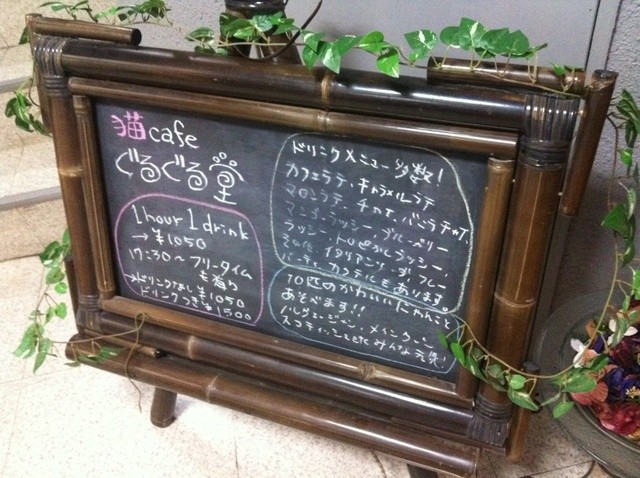 猫cafe
ぐるぐる堂
1hour 1drink
→ ¥1050
17:30～フリータイム
も有り
→ドリンクなし¥1050
ドリンクつき¥1500
ドリンクメニュー多数!
カフェラテ、キャラメルラテ
マロンラテ、チャイ、バニラチャイ、
マンゴーラッシー、ブルーベリー
ラッシー、トロピカルラッシー、
その他、イタリアンソーダ、フレー
バーティー、カクテルもあります。
10匹のかわいいにゃんこと
あそべます!!
ペルシャ、メインクーン
スコティッシュetc みんな元気!